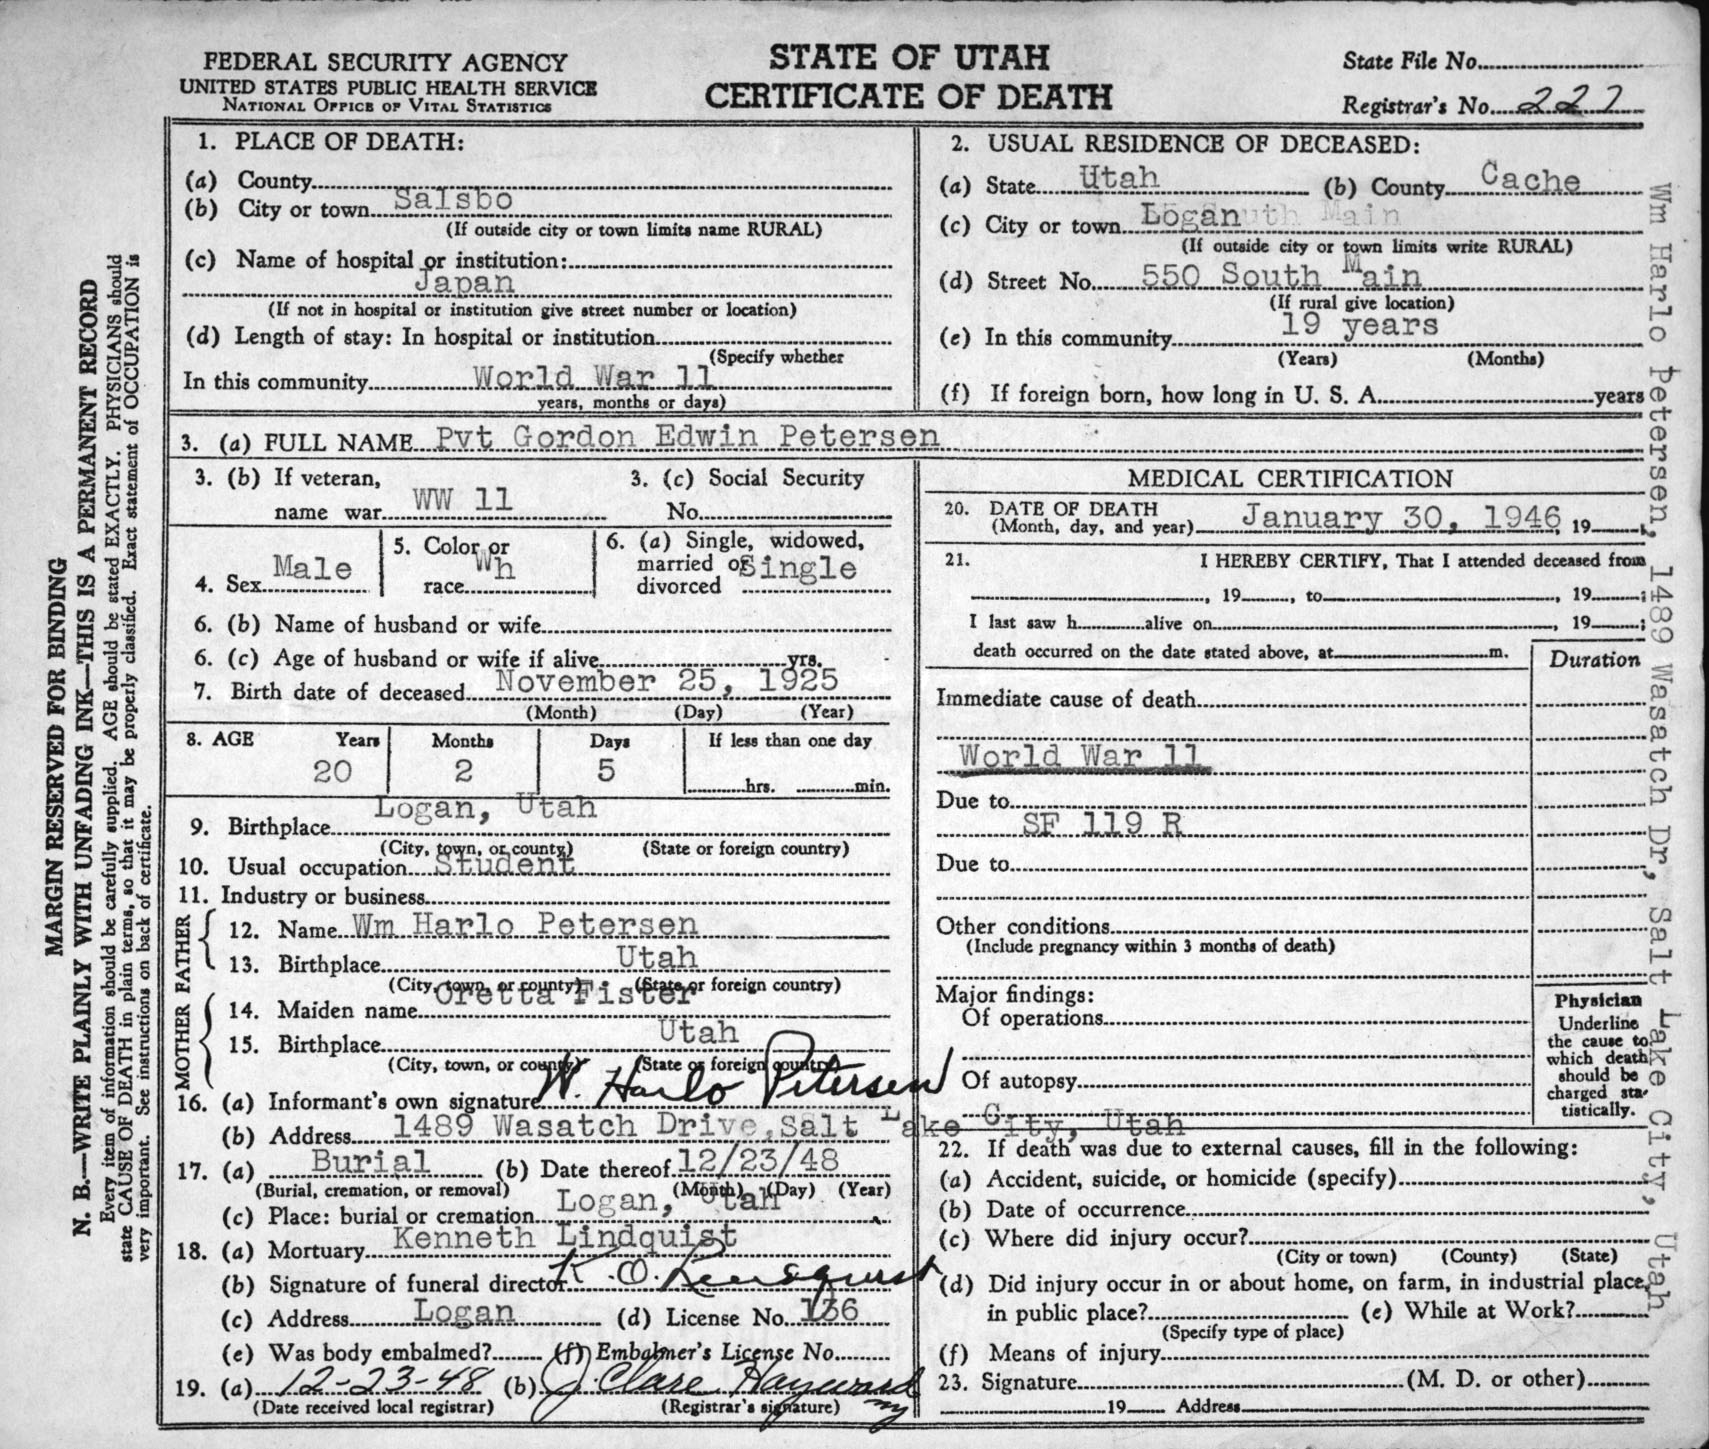 FEDERAL SECURITY AGENCY
UNITED STATES PUBLIC HEALTH SERVICE
NATIONAL OFFICE OF VITAL STATISTICS
STATE OF UTAH
CERTIFICATE OF DEATH
State File No.
Registrar's No. 227
1. PLACE OF DEATH:
(a) County
(b) City or town Saisbo
(If outside city or town limits name RURAL)
(c) Name of hospital or institution:
Japan
(If not in hospital or institution give street number or location)
(d) Length of stay: In hospital or institution
(Specify whether
In this community World War 11
years, months or days)
2. USUAL RESIDENCE OF DECEASED:
(a) State Utah (b) County Cache
(c) City or town Logan
(If outside city or town limits write RURAL)
(d) Street No. 550 South Main
(If rural give location)
(e) In this community 19 years
(Years) (Months)
(f) If foreign born, how long in U. S. A. years
3. (a) FULL NAME Pvt Gordon Edwin Petersen
3. (b) If veteran,
name war WW 11
3. (c) Social Security
No.
4. Sex Male
5. Color or
race Wh
6. (a) Single, widowed,
married or
divorced Single
6. (b) Name of husband or wife
6. (c) Age of husband or wife if alive yrs.
7. Birth date of deceased November 25, 1925
(Month) (Day) (Year)
8. AGE Years Months Days If less than one day
20 2 5 hrs. min.
9. Birthplace Logan, Utah
(City, town, or county) (State or foreign country)
10. Usual occupation Student
11. Industry or business
FATHER
12. Name Wm Harlo Petersen
13. Birthplace Utah
(City, town, or county) (State or foreign country)
MOTHER
14. Maiden name Oretta Fister
15. Birthplace Utah
(City, town, or county) (State or foreign country)
16. (a) Informant's own signature W. Harlo Petersen
(b) Address 1489 Wasatch Drive, Salt Lake City, Utah
17. (a) Burial (b) Date thereof 12/23/48
(Burial, cremation, or removal) (Month) (Day) (Year)
(c) Place: burial or cremation Logan, Utah
18. (a) Mortuary Kenneth Lindquist
(b) Signature of funeral director K. O. Lindquist
(c) Address Logan (d) License No. 136
(e) Was body embalmed? (f) Embalmer's License No.
19. (a) 12-23-48 (b) J. Clare Hayward
(Date received local registrar) (Registrar's signature)
MEDICAL CERTIFICATION
20. DATE OF DEATH
(Month, day, and year) January 30, 1946, 19
21. I HEREBY CERTIFY, That I attended deceased from
, 19 , to , 19 ;
I last saw h alive on , 19 ;
death occurred on the date stated above, at m.
Duration
Immediate cause of death
World War 11
Due to
SF 119 R
Due to
Other conditions
(Include pregnancy within 3 months of death)
Major findings:
Of operations
Of autopsy
Physician
Underline
the cause to
which death
should be
charged sta-
tistically.
22. If death was due to external causes, fill in the following:
(a) Accident, suicide, or homicide (specify)
(b) Date of occurrence
(c) Where did injury occur?
(City or town) (County) (State)
(d) Did injury occur in or about home, on farm, in industrial place,
in public place? (e) While at Work?
(Specify type of place)
(f) Means of injury
23. Signature (M. D. or other)
19 Address
MARGIN RESERVED FOR BINDING
N. B.—WRITE PLAINLY WITH UNFADING INK—THIS IS A PERMANENT RECORD
Every item of information should be carefully supplied. AGE should be stated EXACTLY. PHYSICIANS should
state CAUSE OF DEATH in plain terms, so that it may be properly classified. Exact statement of OCCUPATION is
very important. See instructions on back of certificate.
Wm Harlo Petersen, 1489 Wasatch Dr, Salt Lake City, Utah